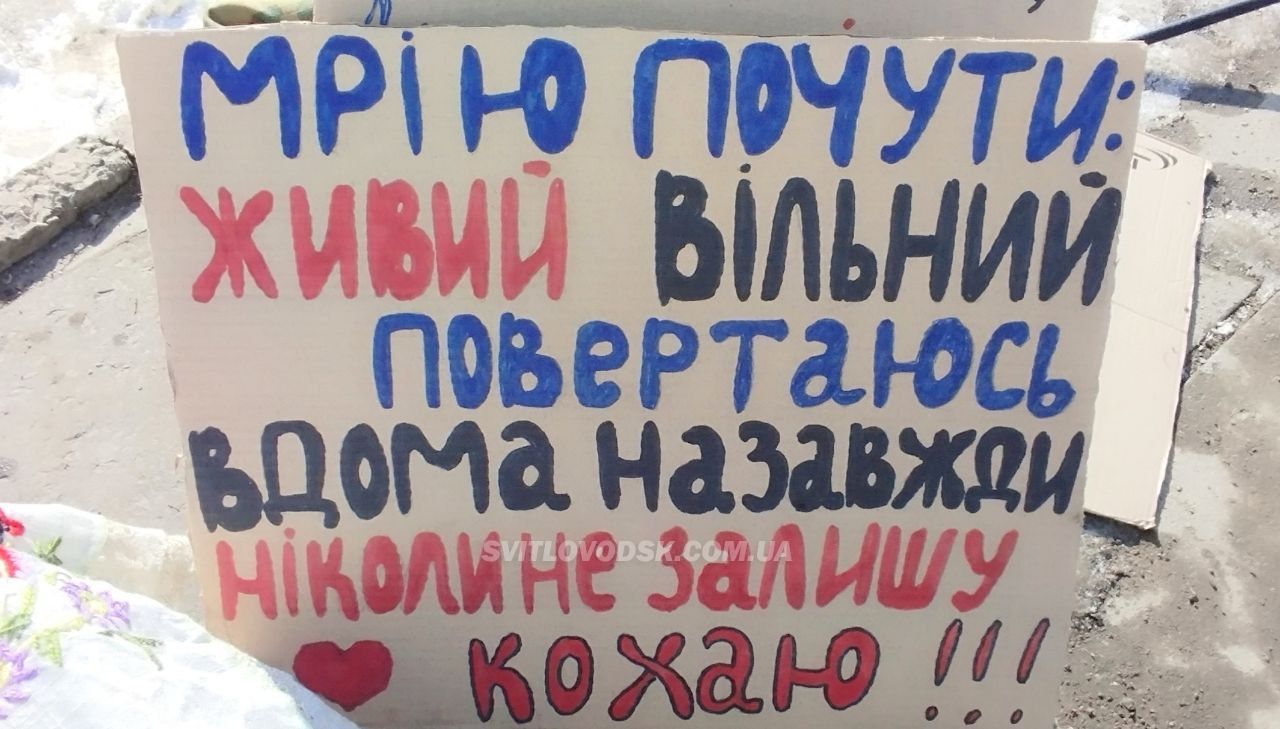 МРІЮ ПОЧУТИ:
ЖИВИЙ ВІЛЬНИЙ
ПОВЕРТАЮСЬ
ВДОМА НАЗАВЖДИ
НІКОЛИ НЕ ЗАЛИШУ
SVITLOVODSK.COM.UA
КОХАЮ!!!